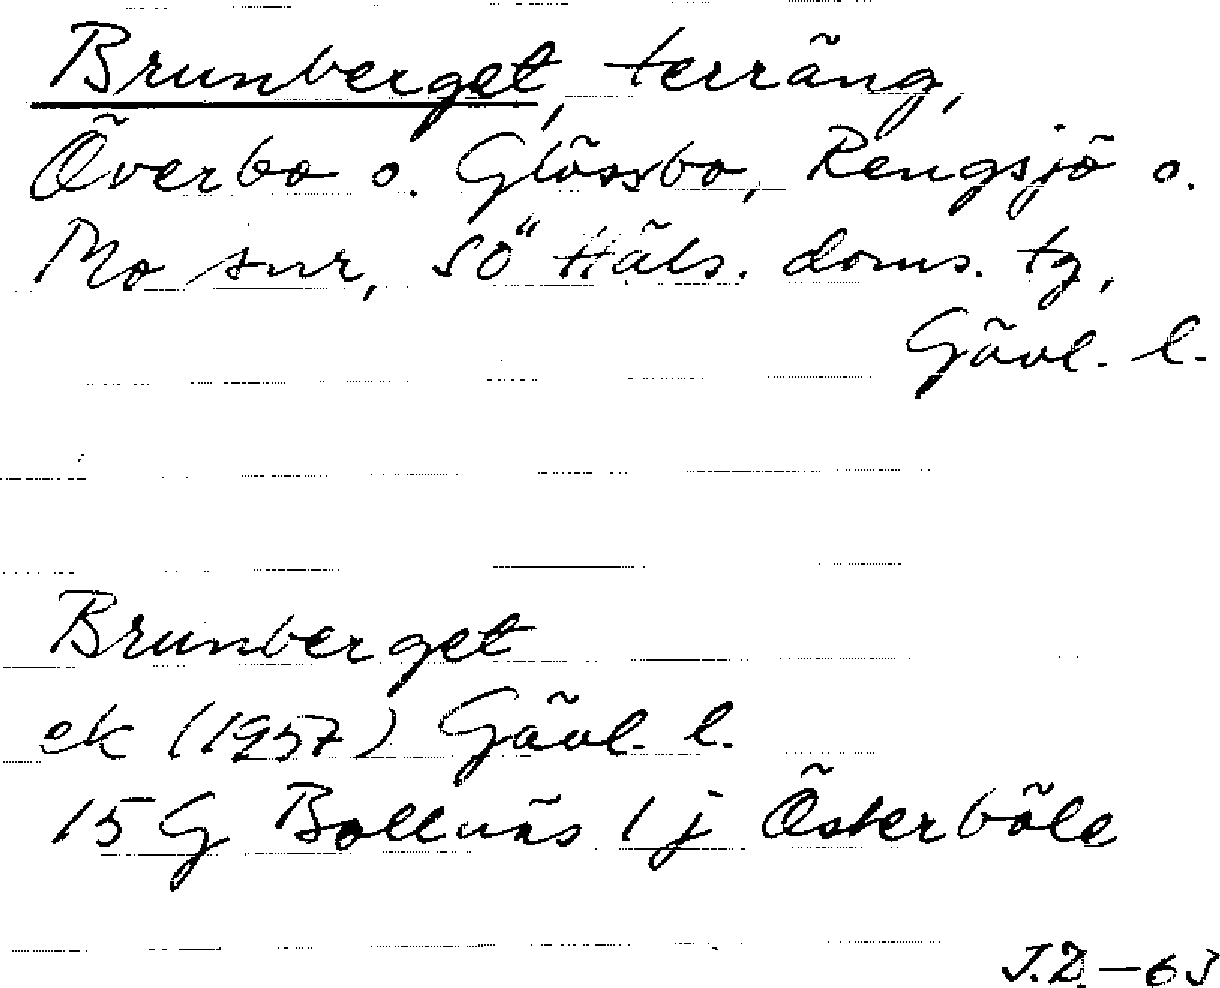 Brunberget, terräng,
Överbo o. Glössbo, Rengsjö o.
Mo snr, SÖ Häls. doms. tg,
Gävl. l.
Brunberget
ek (1957) Gävl. l.
15 G Bollnäs 1 j Österböle
J.D. - 63